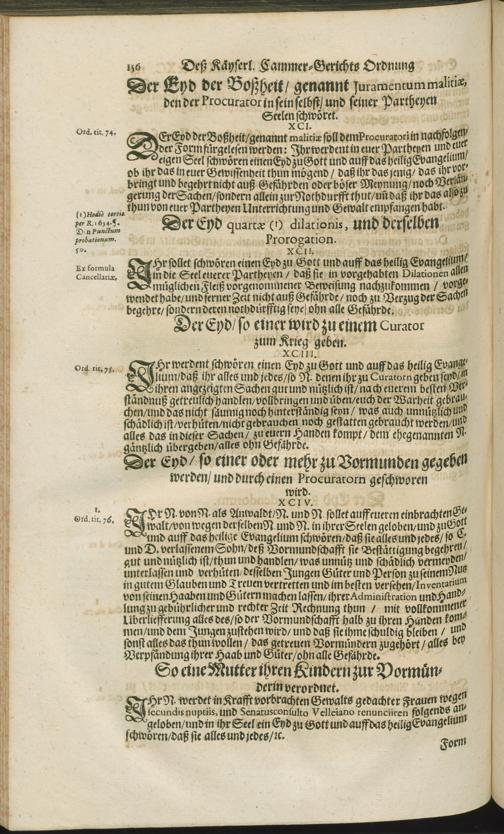 156 Deß Käyserl. Cammer-Gerichts Ordnung
Der Eyd der Boßheit/ genannt Juramentum malitiæ,
den der Procurator in sein selbst/ und seiner Partheyen
Seelen schwöret.
XCI.
Ord. tit. 74.
DEr Eyd der Boßheit/ genannt malitiæ soll dem Procuratori in nachfolgen-
der Form fürgelesen werden: Ihr werdent in euer Partheyen und euer
eigen Seel schwören einen Eyd zu Gott und auff das heilig Evangelium/
ob ihr das in euer Gewissenheit thun mögend/ daß ihr das jenig/ das ihr vor-
bringt und begehrt nicht auß Gefährden oder böser Meynung/ noch Verlän-
gerung der Sachen/ sondern allein zur Nothdurfft thut/ uñ daß ihr das also zu
thun von euer Partheyen Unterrichtung und Gewalt empfangen habt.
Der Eyd quartæ (1) dilationis, und derselben
Prorogation.
XCII.
(1) Hodiè tertia
per R. 1654. §.
Dañ Punctum
probationum.
50.
Ex formula
Cancellariæ.
IHr sollet schwören einen Eyd zu Gott und auff das heilig Evangelium/
in die Seel euerer Partheyen/ daß sie in vorgehabten Dilationen allen
müglichen Fleiß vorgenommener Beweisung nachzukommen/ vorge-
wendet habe/ und ferner Zeit nicht auß Gefährde/ noch zu Verzug der Sachen
begehre/ sondern deren nothdürfftig seye/ ohn alle Gefährde.
Der Eyd/ so einer wird zu einem Curator
zum Krieg geben.
XCIII.
Ord. tit. 75.
IHr werdent schwören einen Eyd zu Gott und auff das heilig Evange-
lium/ daß ihr alles und jedes/ so N. denen ihr zu Curatorn geben seyd/ in
ihren angezeigten Sachen gut und nützlich ist/ nach euerem besten Ver-
ständnuß getreulich handlen/ vollbringen und üben/ euch der Warheit gebrau-
chen/ und das nicht säumig noch hinterständig seyn/ was auch unnützlich und
schädlich ist/ verhüten/ nicht gebrauchen noch gestatten gebraucht werden/ und
alles das in dieser Sachen/ zu euern Handen kompt/ dem ehegenannten N.
gäntzlich übergeben/ alles ohn Gefährde.
Der Eyd/ so einer oder mehr zu Vormunden gegeben
werden/ und durch einen Procuratorn geschworen
wird.
XCIV.
1.
Ord. tit. 76.
IHr N. von N. als Anwaldt/ N. und N. sollet auff eueren einbrachten Ge-
walt/ von wegen derselben N. und N. in ihrer Seelen geloben/ und zu Gott
und auff das heilige Evangelium schwören/ daß sie alles und jedes/ so C.
und D. verlassenem Sohn/ deß Vormundschafft sie Bestättigung begehren/
gut und nützlich ist/ thun und handlen/ was unnütz und schädlich vermeyden/
unterlassen und verhüten/ desselben Jungen Güter und Person zu seinem Nutz
in gutem Glauben und Treuen vertretten und im besten versehen/ Inventarium
von seinen Haaben und Gütern machen lassen/ ihrer Administration und Hand-
lung zu gebührlicher und rechter Zeit Rechnung thun/ mit vollkommener
Uberliefferung alles des/ so der Vormundschafft halb zu ihren Handen kom-
men/ und dem Jungen zustehen wird/ und daß sie ihme schuldig bleiben/ und
sonst alles das thun wollen/ das getreuen Vormündern zugehört/ alles bey
Verpfändung ihrer Haab und Güter/ ohn alle Gefährde.
So eine Mutter ihren Kindern zur Vormün-
derin verordnet.
IHr N. werdet in Krafft vorbrachten Gewalts gedachter Frauen wegen
secundis nuptiis, und Senatusconsulto Velleiano renunciiren folgends an-
geloben/ und in ihr Seel ein Eyd zu Gott und auff das heilig Evangelium
schwören/ daß sie alles und jedes/ ꝛc.
Form